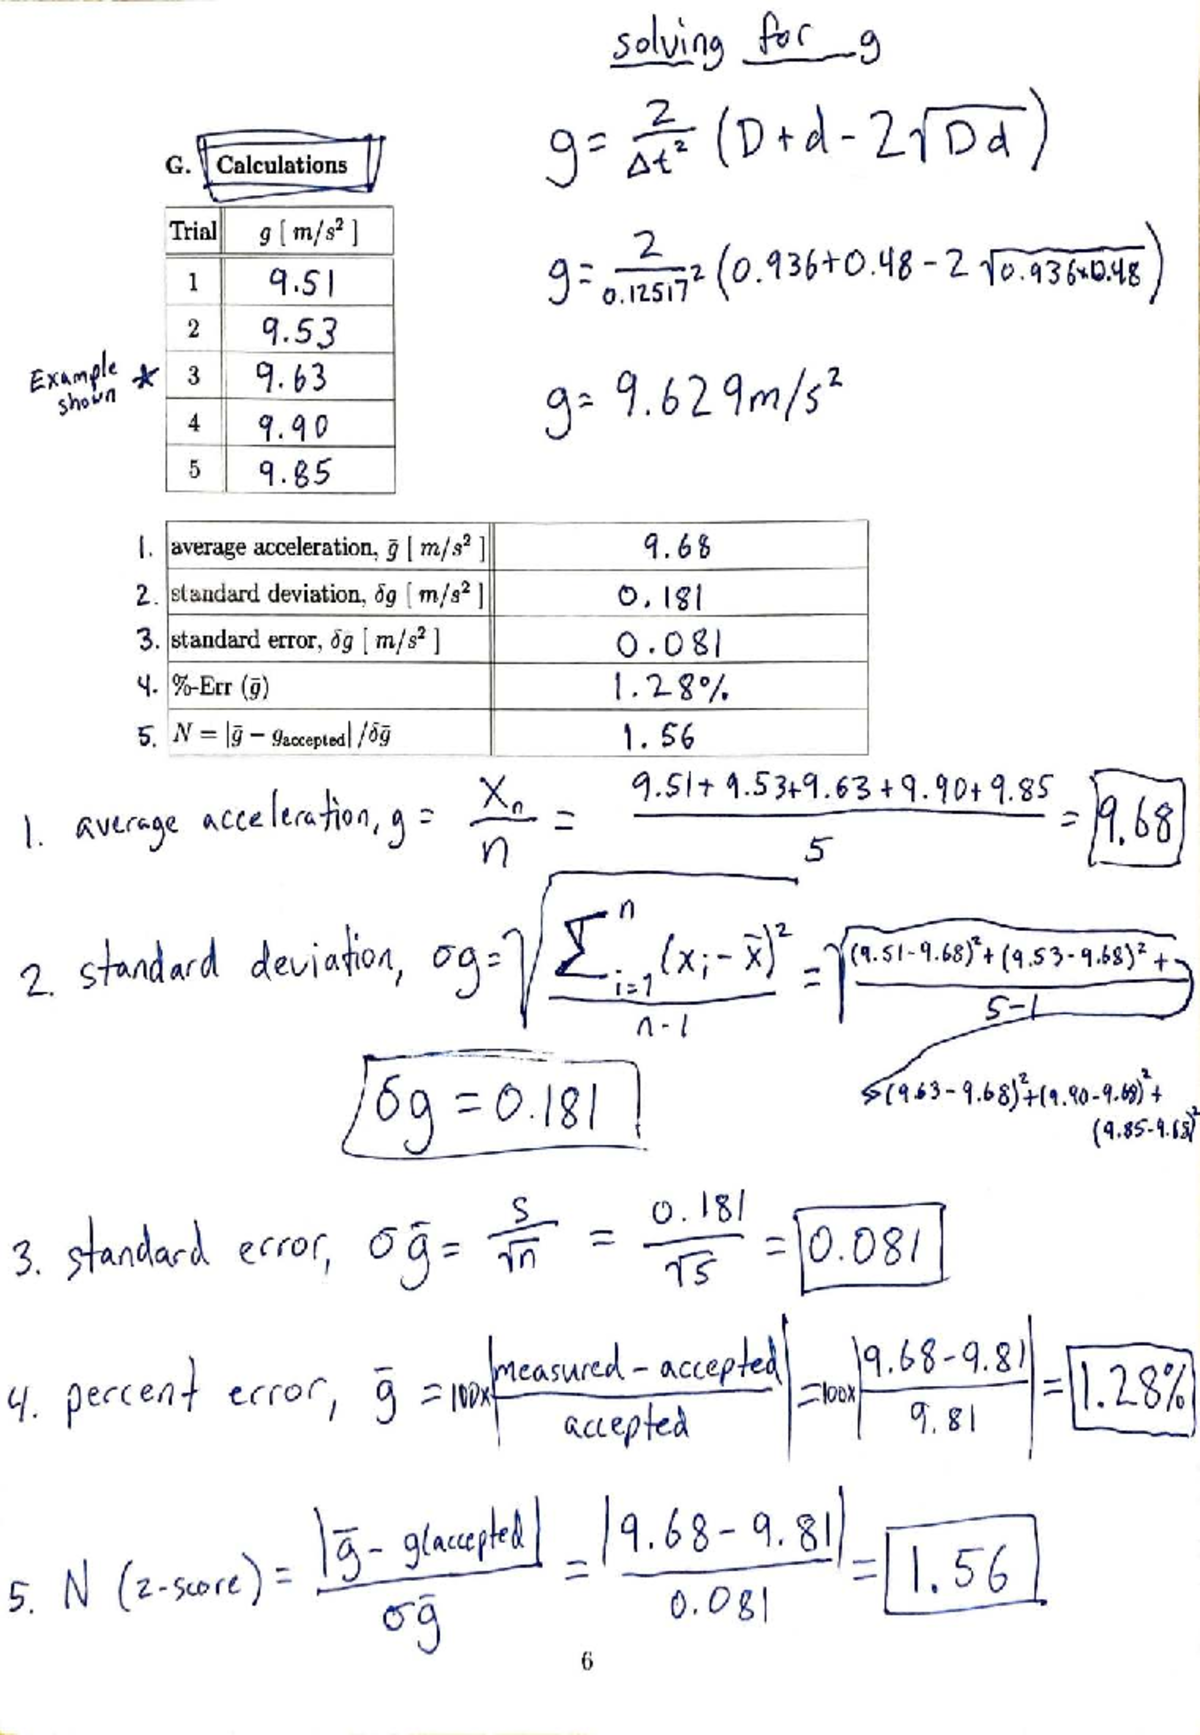 solving for g
g = 2/Δt² (D + d - 2√Dd)
G. Calculations
Trial g [ m/s² ]
g = 2/0.12517² (0.936+0.48 - 2 √0.936×0.48)
1 9.51
2 9.53
Example shown * 3 9.63
g = 9.629 m/s²
4 9.90
5 9.85
1. average acceleration, ḡ [ m/s² ] 9.68
2. standard deviation, δg [ m/s² ] 0.181
3. standard error, δ̄g [ m/s² ] 0.081
4. %-Err (ḡ) 1.28%
5. N = |ḡ − g_accepted| /δḡ 1.56
1. average acceleration, g = Xn/n = 9.51+ 9.53+9.63 + 9.90+ 9.85/5 = 9.68
2. standard deviation, σg = √ Σ i=1 n (xi - x̄)²/n-1 = √(9.51-9.68)² + (9.53-9.68)² +/5-1
(9.63-9.68)²+(9.90-9.68)² +
(9.85-9.68)²
δg = 0.181
3. standard error, σḡ = s/√n = 0.181/√5 = 0.081
4. percent error, ḡ = 100x |measured - accepted/accepted| = 100x |9.68-9.81/9.81| = 1.28%
5. N (z-score) = |ḡ - g(accepted|/σḡ = |9.68 - 9.81|/0.081 = 1.56
6